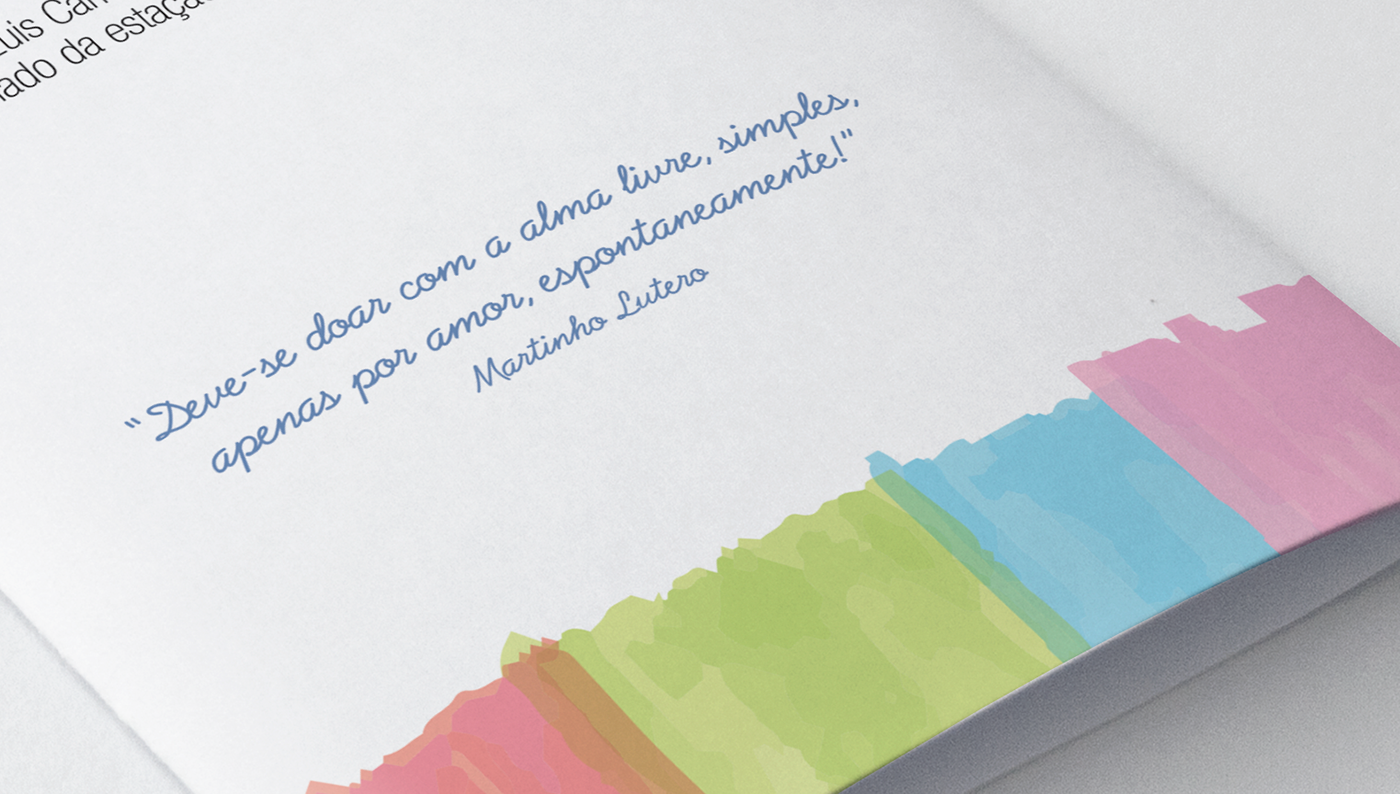 da estação
“Deve-se doar com a alma livre, simples,
apenas por amor, espontaneamente!"
Martinho Lutero